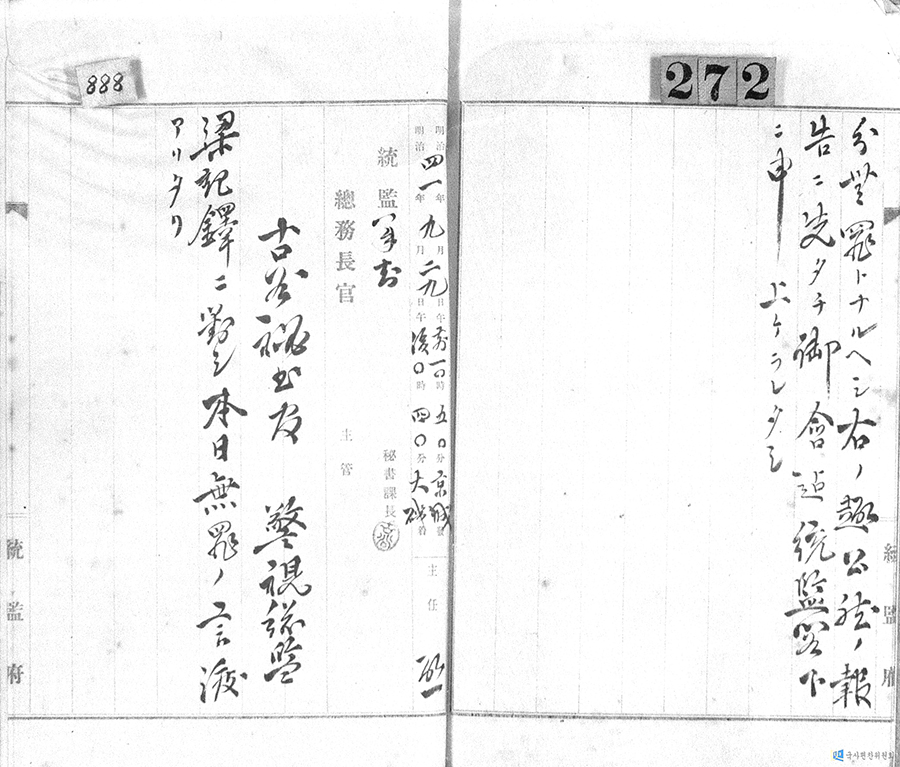 272
分無罪トナルヘシ右ノ趣公然ノ報
告ニ先タチ御會迄統監閣下
ニ申上ケラレタシ
統監府
888
明治 年 月 日午前一〇時五〇分京城發
明治四一年九月二九日午後〇時四〇分大磯着
主任
統監
秘書課長
總務長官
主管
古谷秘書官 警視総監
梁起鐸ニ對シ本日無罪ノ言渡
アリタリ
統監府
국사편찬위원회